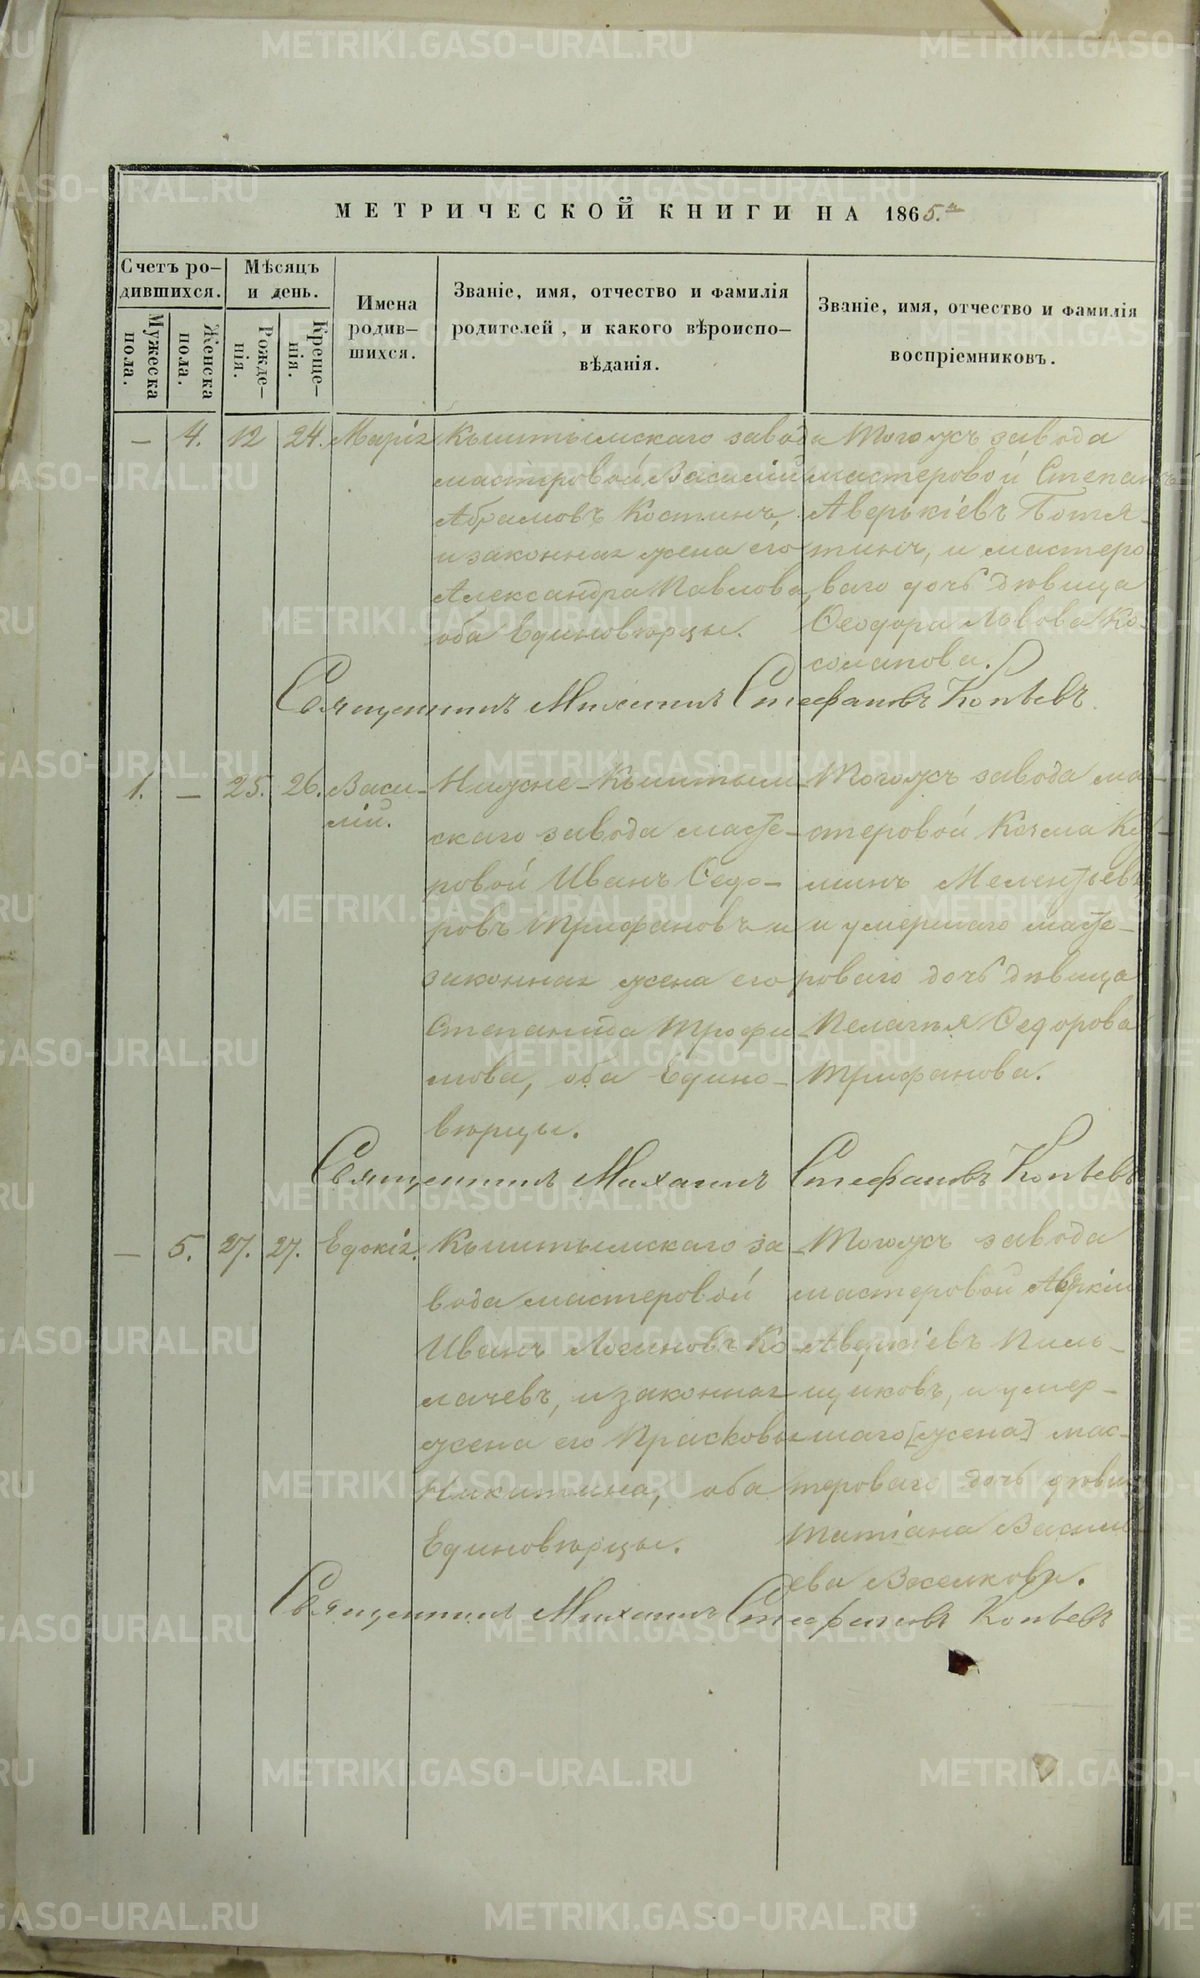 МЕТРИЧЕСКОЙ КНИГИ НА 1865.й
Счетъ ро-
дившихся.
Мужеска
пола.
Женска
пола.
Мѣсяцъ
и день.
Рожде-
нія.
Креще-
нія.
Имена
родив-
шихся.
Званіе, имя, отчество и фамилія
родителей, и какого вѣроиспо-
вѣданія.
Званіе, имя, отчество и фамилія
воспріемниковъ.
— 4. 12 24. Марія
Кыштымскаго завода
мастеровой Василій
Абрамовъ Костинъ,
и законная жена его
Александра Павлова,
оба Единовѣрцы.
Тогожъ завода
мастеровой Степанъ
Аверькіевъ Потя-
тинъ, и мастеро
ваго дочь дѣвица
Ѳеодора Львова Ко-
солапова.
Священникъ Михаилъ Стефановъ Копѣевъ.
1. — 25. 26. Васи-
лій.
Нижне-Кыштым-
скаго завода масте-
ровой Иванъ Ѳедо-
ровъ Трифановъ и
законная жена его
Степанида Трофи-
мова, оба Едино-
вѣрцы.
Тогожъ завода ма-
стеровой Козма
минъ Мелентьевъ
и умершаго масте-
роваго дочь дѣвица
Пелагѣя Ѳедорова
Трифанова.
Священникъ Михаилъ Стефановъ Копѣевъ
— 5. 27. 27. Евдокія.
Кыштымскаго за-
вода мастеровой
Иванъ Логиновъ Ко-
лачевъ, и законная
жена его Прасковья
Никитина, оба
Единовѣрцы.
Тогожъ завода
мастеровой
Аверкіевъ Пиль-
щиковъ, и умер-
шаго [жена] мас-
тероваго дочь дѣви
Татіана Василь
ева
Священникъ Михаилъ Стефановъ Копѣевъ
METRIKI.GASO-URAL.RU